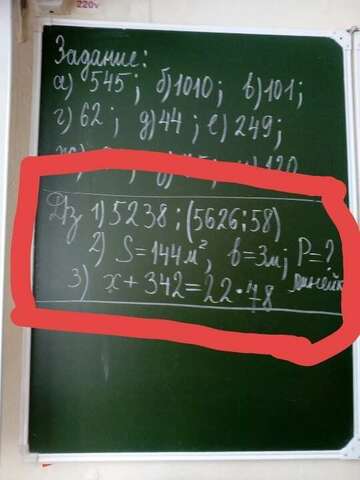 220v
Задание:
а) 545; б) 1010; в) 101;
г) 62; д) 44; е) 249;
120
Дз 1) 5238 : (5626 : 58)
2) S = 144 м², b = 3м; P = ?
3) x + 342 = 22 · 78